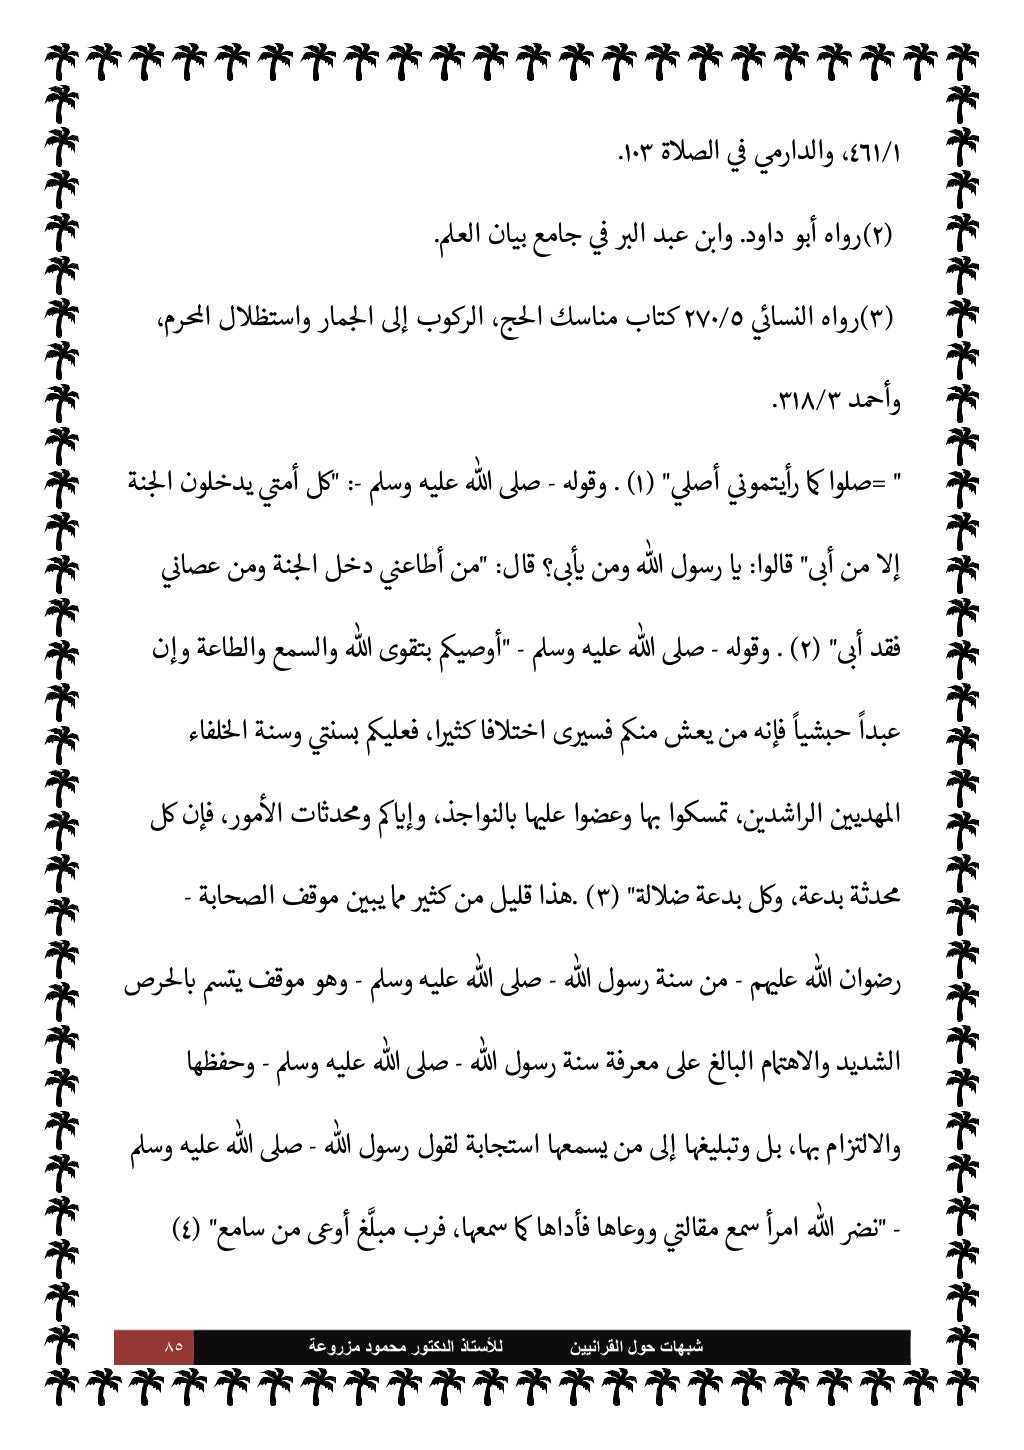 ٤٦١/١، والدارمي في الصلاة ١٠٣.
(٢)رواه أبو داود. وابن عبد البر في جامع بيان العلم.
(٣)رواه النسائي ٢٧٠/٥ كتاب مناسك الحج، الركوب إلى الجمار واستظلال المحرم،
وأحمد ٣١٨/٣.
" =صلوا كما رأيتموني أصلي" (١) . وقوله - صلى الله عليه وسلم -: "كل أمتي يدخلون الجنة
إلا من أبى" قالوا: يا رسول الله ومن يأبى؟ قال: "من أطاعني دخل الجنة ومن عصاني
فقد أبى" (٢) . وقوله - صلى الله عليه وسلم - "أوصيكم بتقوى الله والسمع والطاعة وإن
عبداً حبشياً فإنه من يعش منكم فسيرى اختلافا كثيرا، فعليكم بسنتي وسنة الخلفاء
المهديين الراشدين، تمسكوا بها وعضوا عليها بالنواجذ، وإياكم ومحدثات الأمور، فإن كل
محدثة بدعة، وكل بدعة ضلالة" (٣) .هذا قليل من كثير مما يبين موقف الصحابة -
رضوان الله عليهم - من سنة رسول الله - صلى الله عليه وسلم - وهو موقف يتسم بالحرص
الشديد والاهتمام البالغ على معرفة سنة رسول الله - صلى الله عليه وسلم - وحفظها
والالتزام بها، بل وتبليغها إلى من يسمعها استجابة لقول رسول الله - صلى الله عليه وسلم
- "نضر الله امرأ سمع مقالتي ووعاها فأداها كما سمعها، فرب مبلَّغ أوعى من سامع" (٤)
شبهات حول القرانيين للأستاذ الدكتور محمود مزروعة ٨٥